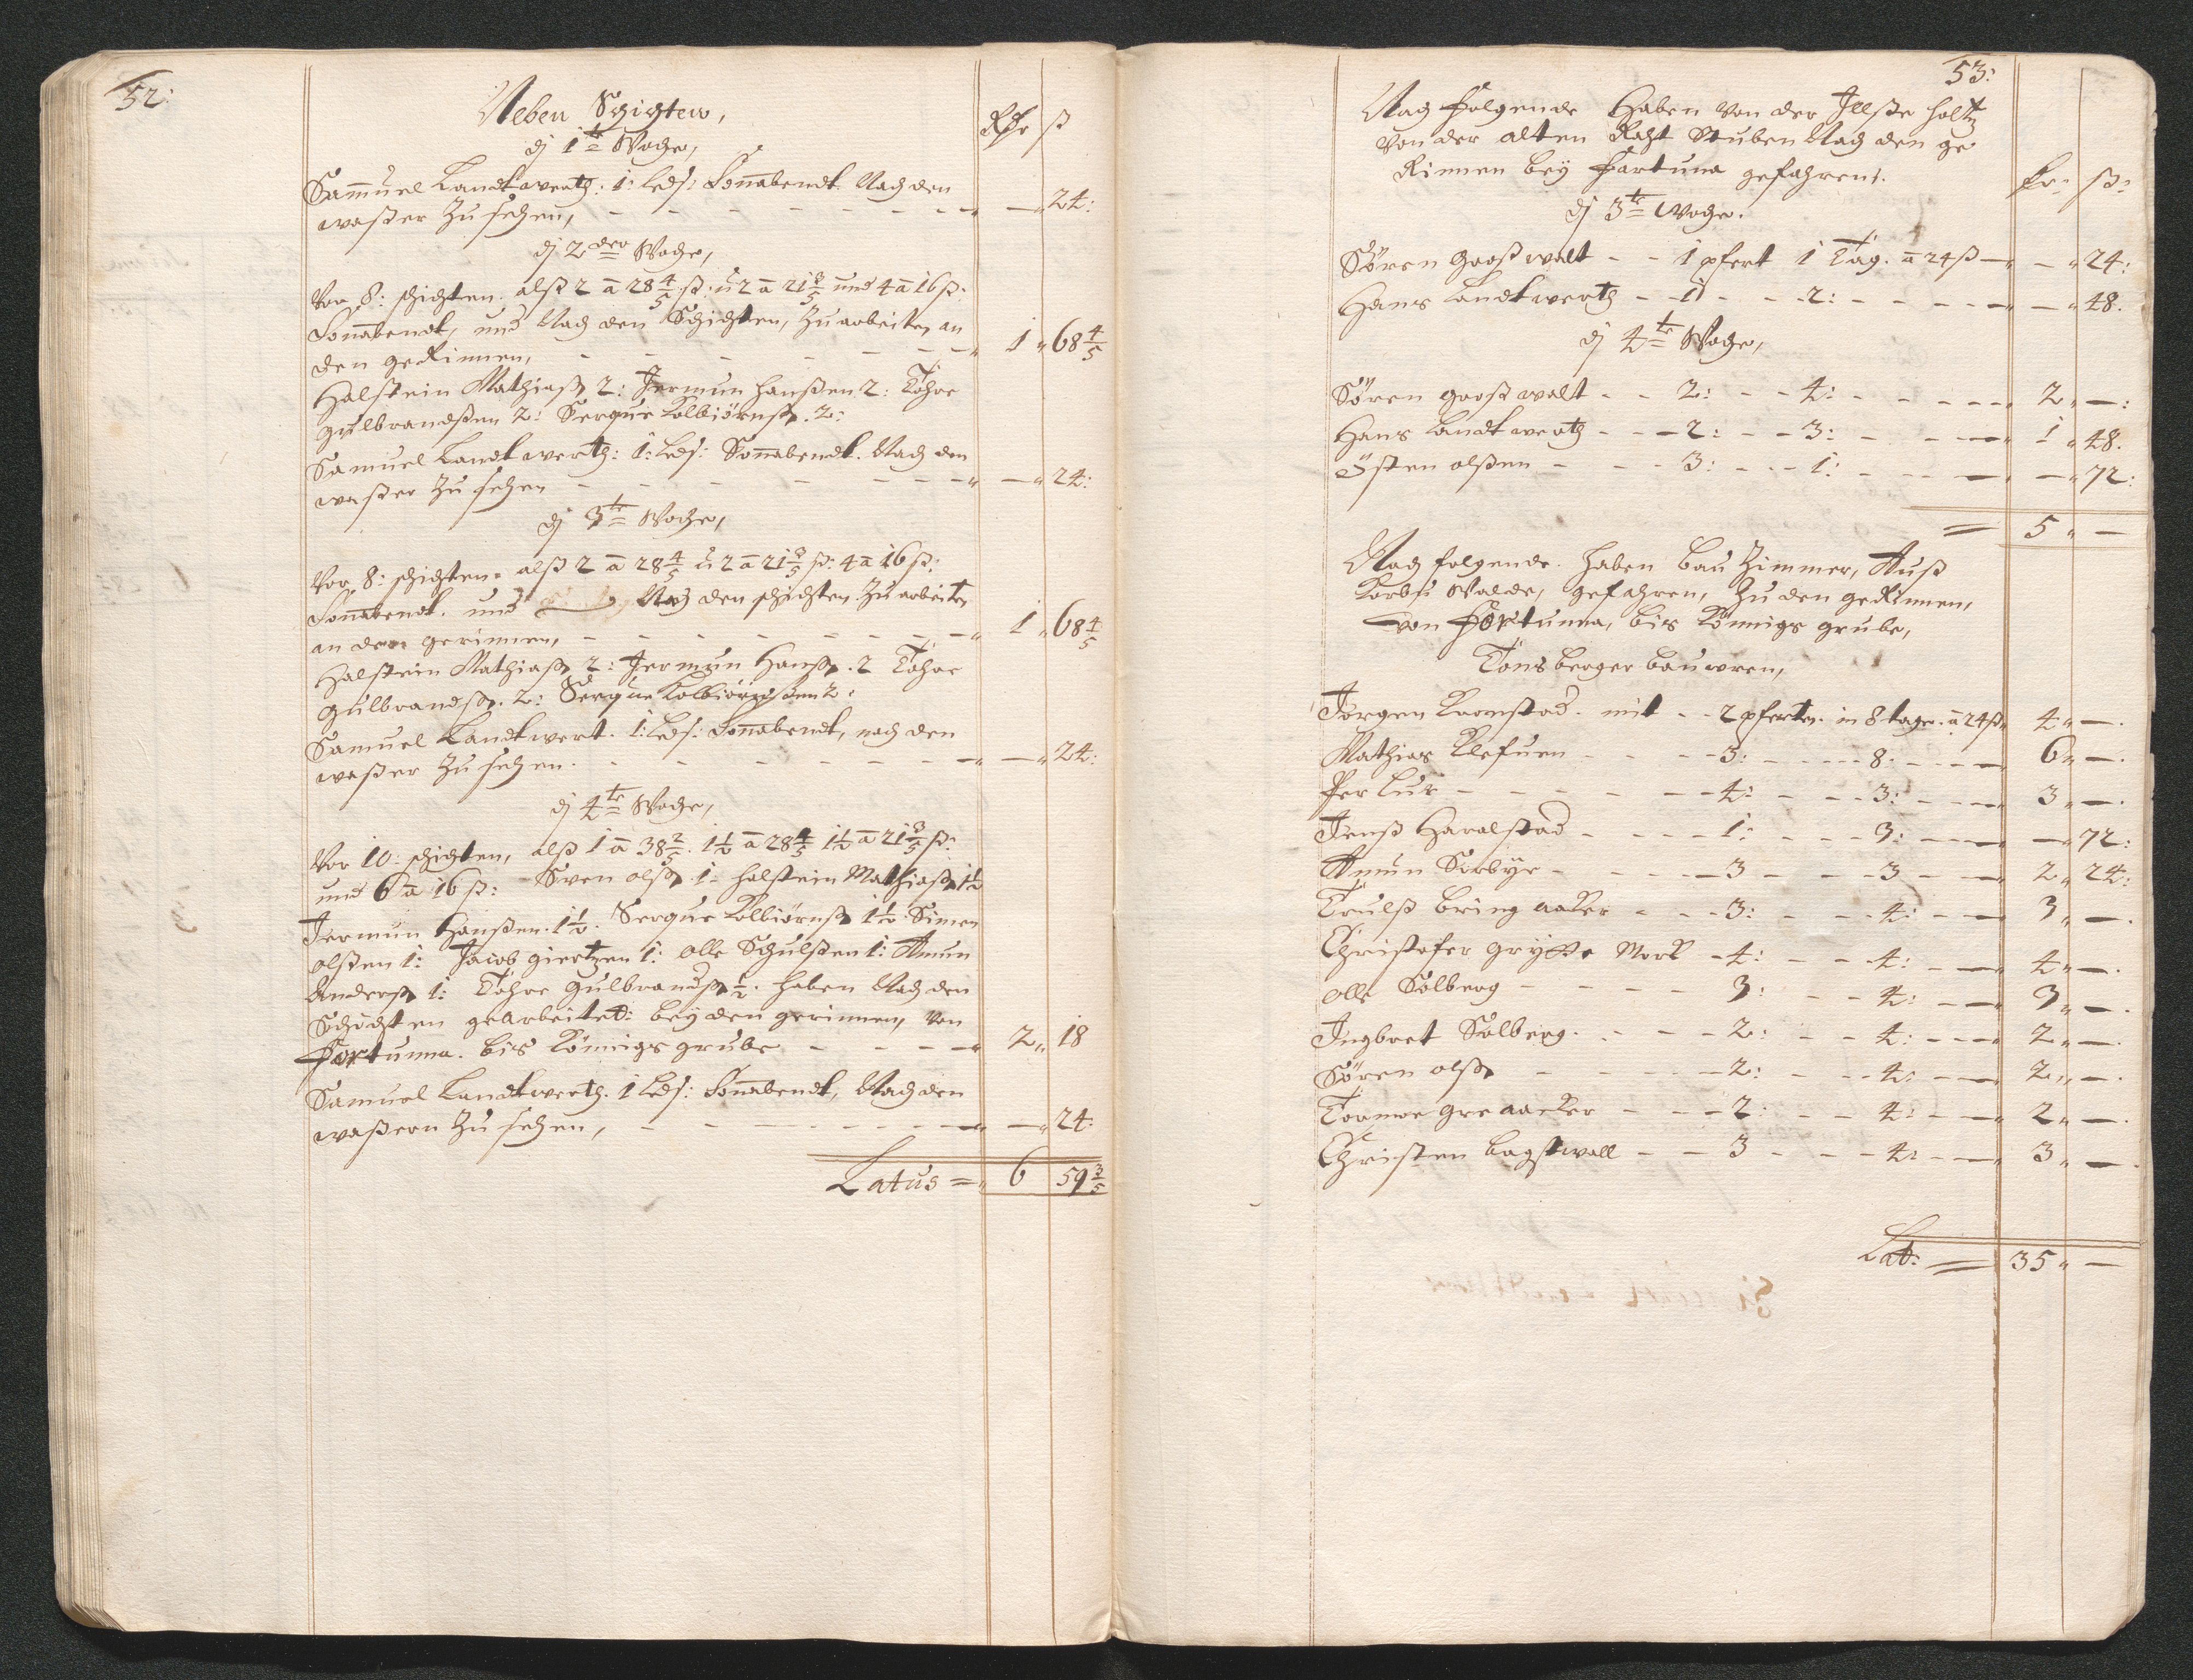 52:
Neben Schigten,
Rthr ß
dj 1te Woche,
Sam̄uel Landtwerth: 1: Leds: Son̄abendt Nach den
waßer Zu sehen, — — 24:
dj 2der Woche,
Vor 8: schichten. alß 2 a 28 4/5 ß: u 2 a 21 3/5 und 4 a 16 ß:
Son̄abendt, und Nach den Schichten, Zu arbeiten an
den geRinnen, — 1 " 68 4/5
Halstein Mathiaß 2: Jermun Hanßen 2: Tohre
gulbrandßen 2: Sergue Kolbiörnß. 2:
Samuel Landtwerth: 1: Leds: Son̄abendt. Nach den
waßer Zu sehen — — " 24:
dj 3te Woche,
Vor 8: schichten. alß 2 a 28 4/5 u 2 a 21 3/5 ß: 4 a 16 ß:
Son̄abendt. und Nach den schichten Zu arbeiten
an den gerinnen, — 1 " 68 4/5
Halstein Mathiaß 2: Jermun Hanß. 2 Tohre
gulbrandß. 2: Sergue Kolbiörnßen 2:
Samuel Landtwert. 1: Leds: Son̄abendt, nach den
waßer Zu sehen. — — " 24:
dj 4te Woche,
Vor 10: schichten, alß 1 a 38 2/5. 1½ a 28 4/5 1½ a 21 3/5 ß:
und 6 a 16 ß: Sven olß. 1: Halstein Mathiaß 1½
Jermun Hanßen. 1½. Sergue Kolbiörnß 1½ Simen
olßen 1: Jacob giertzen 1: olle Schulßen 1: Amun
Anderß 1: Tohre Gulbrandß ½. haben Nach den
Schichten gearbeitet: bey den gerinnen, von
Fortunna. bis Königs grube — 2 " 18
Samuel Landtwerth. 1 Leds: Son̄abendt, Nach den
waßern Zu sehen, — — " 24:
Latus = 6 59 3/5
53:
Nach Folgende Haben Von der Illste holtz
Von der alten Raht Stuben Nach den ge
Rinnen bey Fortuna gefahren.
Rr: ß:
dj 3te Woche.
Sören großwalt - - 1 pfert 1 Tag. a 24 ß — — " 24:
Hans Landtwerth - - 1 - - 2: - - — " 48.
dj 4te Woche,
Sören großwalt - - 2: - - 4: - - 2 " —:
Hans Landtwerth - - 2: - - 3: - - 1 " 48.
Östen olßen - - 3: - - 1: - - — " 72:
= 5 " —
Nach folgende. haben bau Zimmer, Auß
Korbu Walde, gefahren, Zu den geRinnen,
von Fortunna, bis Königs grube,
Tonsberger bauwren,
Jörgen Kronstad. mit - - 2 pferten. in 8 tage. a 24 ß 4 " —.
Mathias Klefuen - - 3: - - 8: - - 6 " —.
Per Lur - - 4: - - 3: - - 3 " —.
Jenß Haralstad - - 1: - - 3: - - — " 72:
Amun Sorbye - - 3 - - 3 - - 2 " 24:
Trulß bring aaker - - 3: - - 4: - - 3 " —.
Christofer grytte Mork - 4: - - 4: - - 4 " —.
olle Solberg - - 3: - - 4: - - 3 " —.
Ingbret Solberg. - - 2: - - 4: - - 2 " —.
Sören olß - - 2: - - 4: - - 2 " —.
Toamoe gre aacker - - 2: - - 4: - - 2 " —.
Christen bagstwall - - 3 - - 4: - - 3 " —.
Lat: = 35 " —